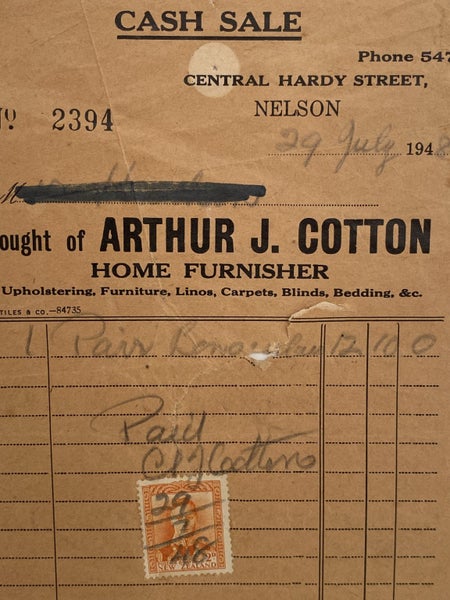 CASH SALE
Phone 547
CENTRAL HARDY STREET,
No 2394
NELSON
29 July 1948
M
ought of ARTHUR J. COTTON
HOME FURNISHER
Upholstering, Furniture, Linos, Carpets, Blinds, Bedding, &c.
TILES & CO.—84735
1 Pair 12 10 0
Paid
Cotton
29
7
48
NEW ZEALAND